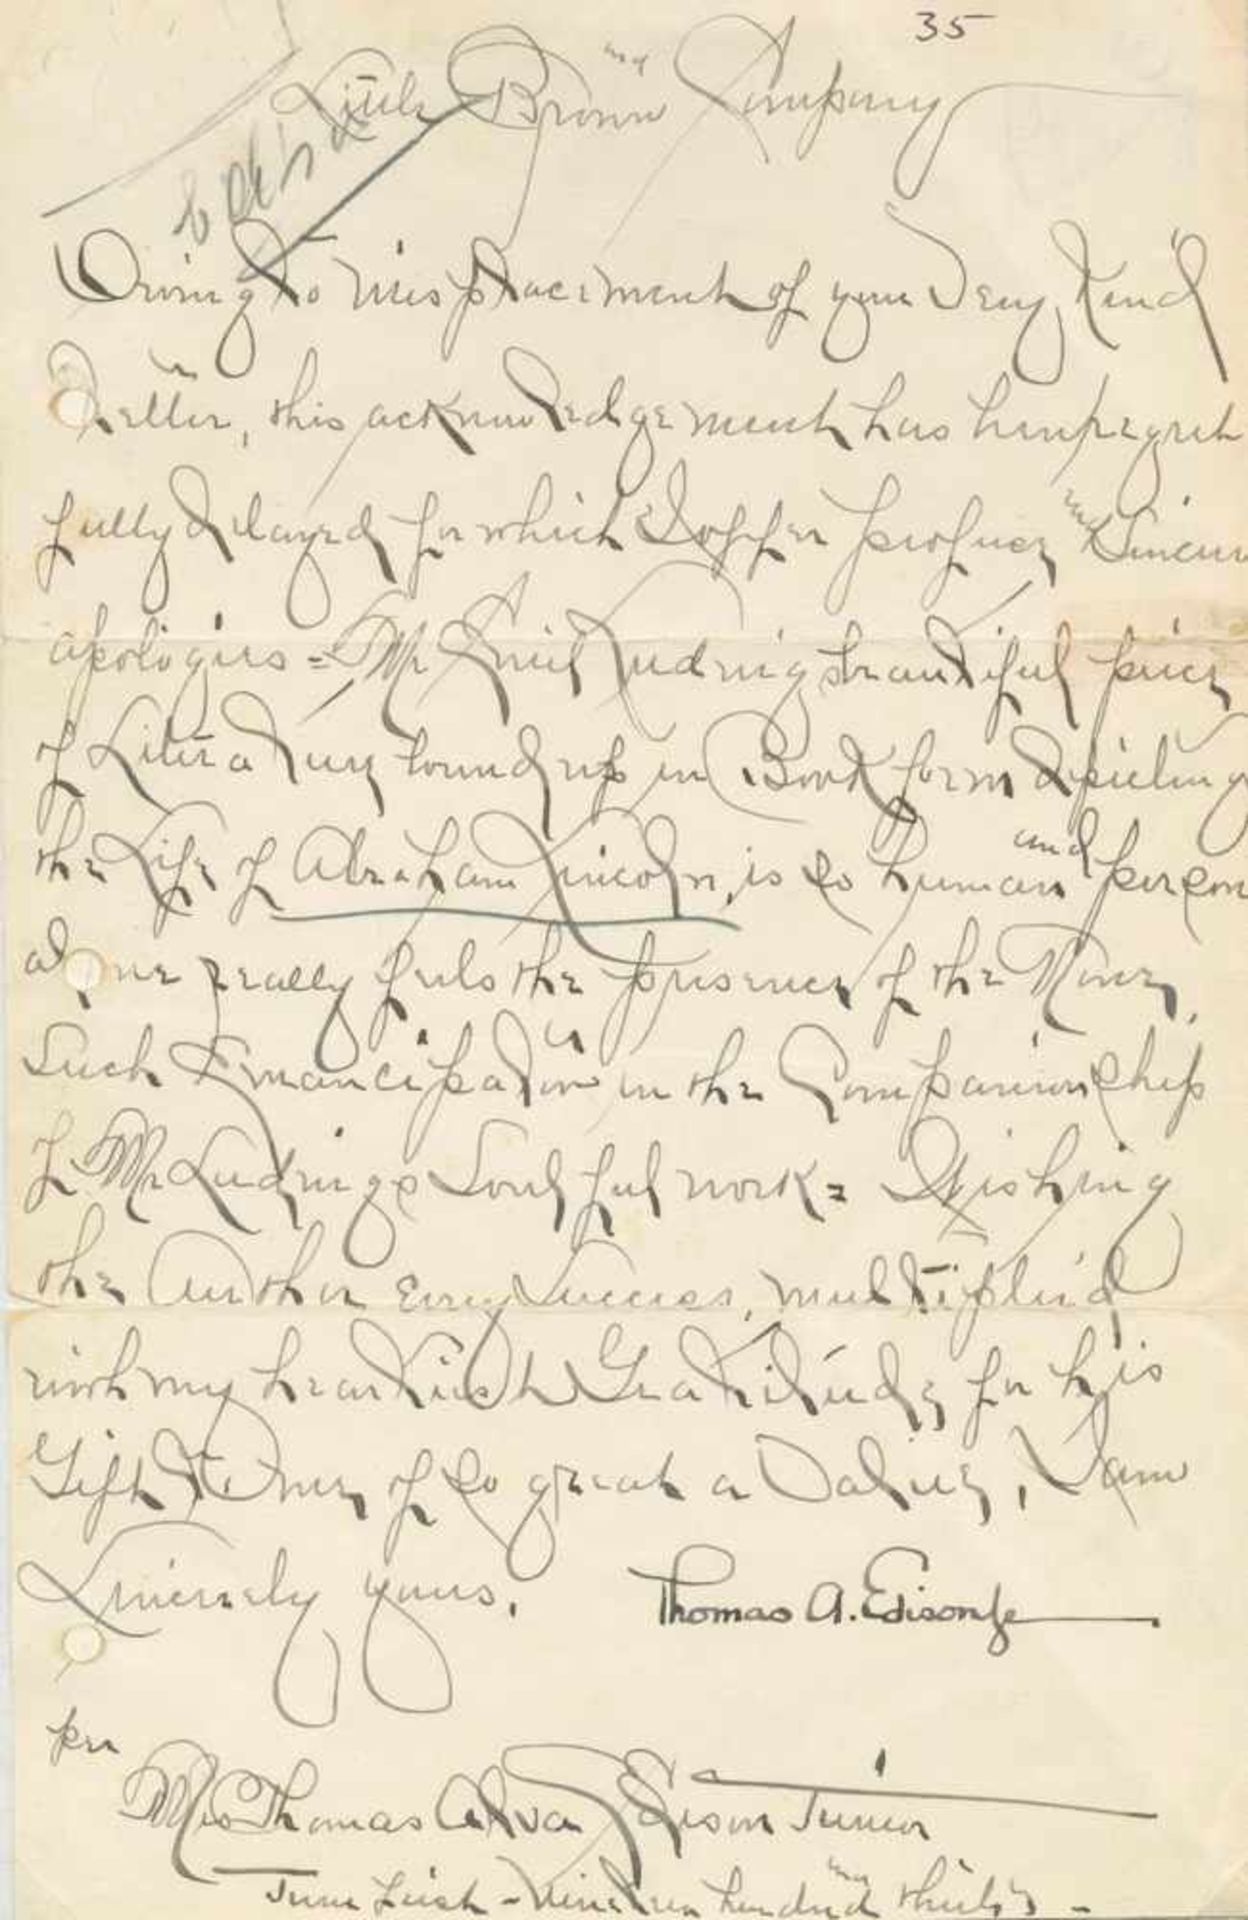 35
Little Brown and Company
Owing to misplacement of your Very Kind
Letter, this acknowledgement has been regret
fully delayed for which I offer profuse and Sincere
apologies = Mr Emil Ludwigs beautiful piece
of Literature bound up in Book form depicting
the Life of Abraham Lincoln, is so human and person
al one really feels the presence of the
Such Emancipation in the Companionship
of Mr Ludwigs Soulful work = Wishing
the Author every Success, multiplied
with my heartiest Gratitude for his
Gift to One of so great a Value, I am
Sincerely yours, Thomas A. Edison Jr
per
Mrs Thomas Alva Edison Junior
June first - Nineteen hundred and thirty -